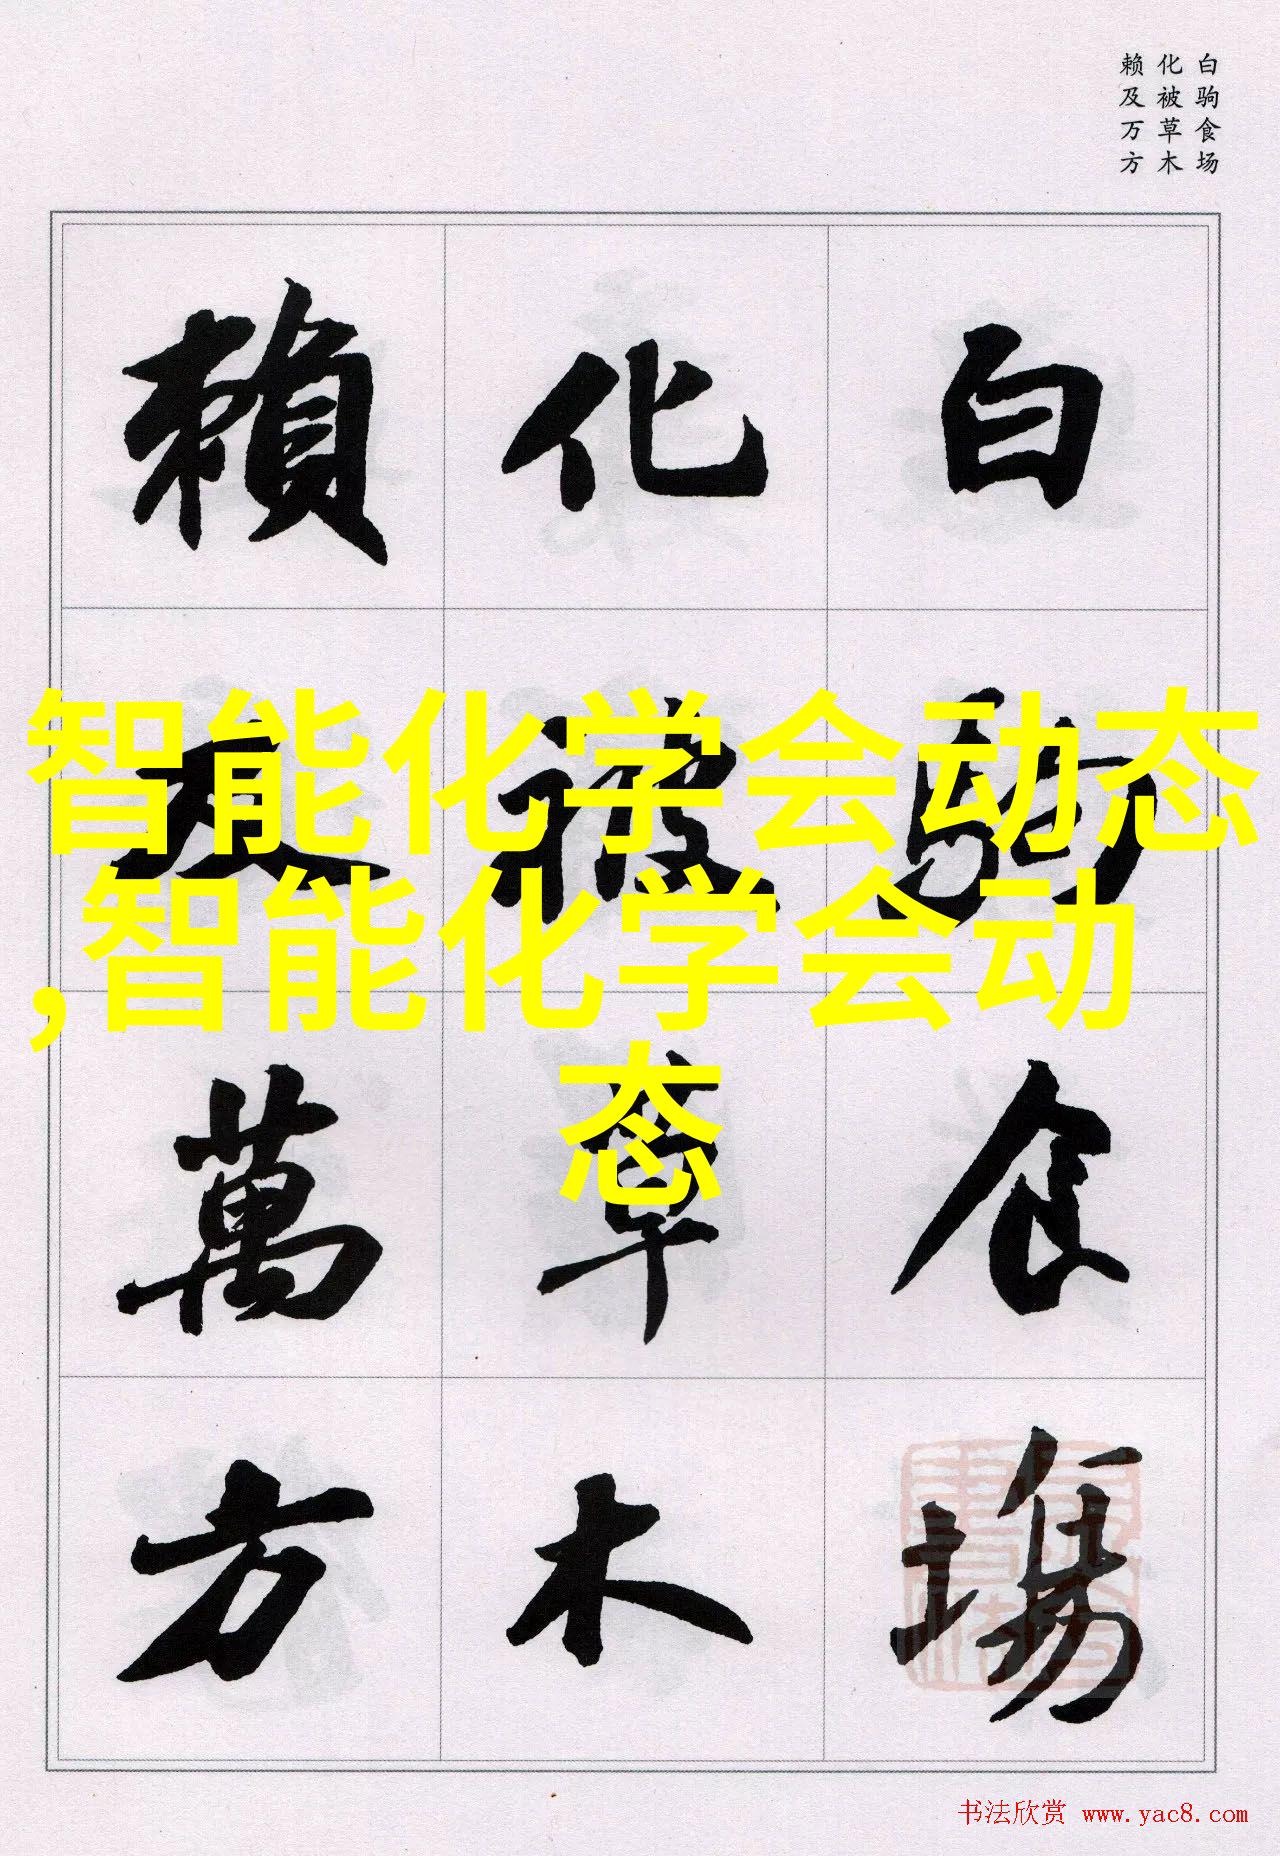 白驹食场
化被草木
赖及万方
白駒食場
化被草木
賴及萬方
智能化学会动态
,智能化学会动
态
书法欣赏 www.yac8.com